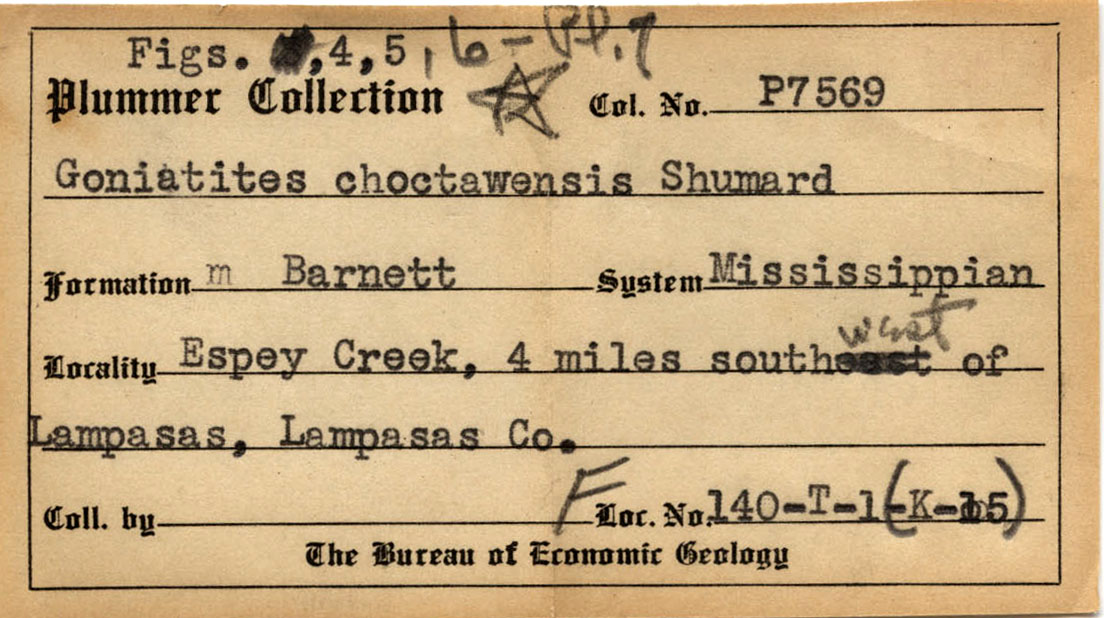 Figs. ,4,5,6-Pl.7
Plummer Collection Col. No. P7569
Goniatites choctawensis Shumard
Formation m Barnett System Mississippian
west
Locality Espey Creek, 4 miles southeast of
Lampasas, Lampasas Co.
Coll. by F Loc. No. 140-T-1(-K-15)
The Bureau of Economic Geology